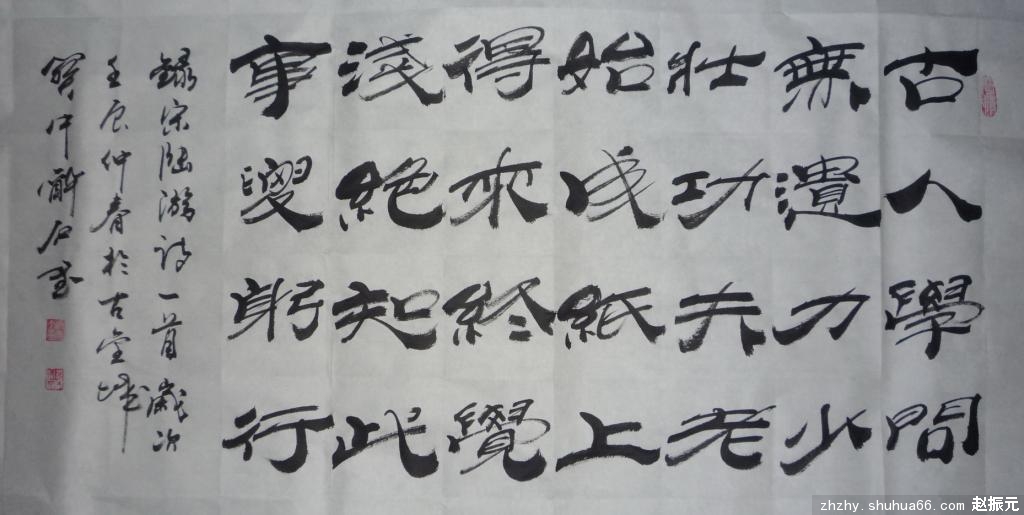 古人學問
無遺力少
壯功夫老
始成紙上
得來終覺
淺絕知此
事要躬行
錄宋陸游詩一首歲次
壬辰仲春於古金城
中石
zhzhy.shuhua66.com 赵振元